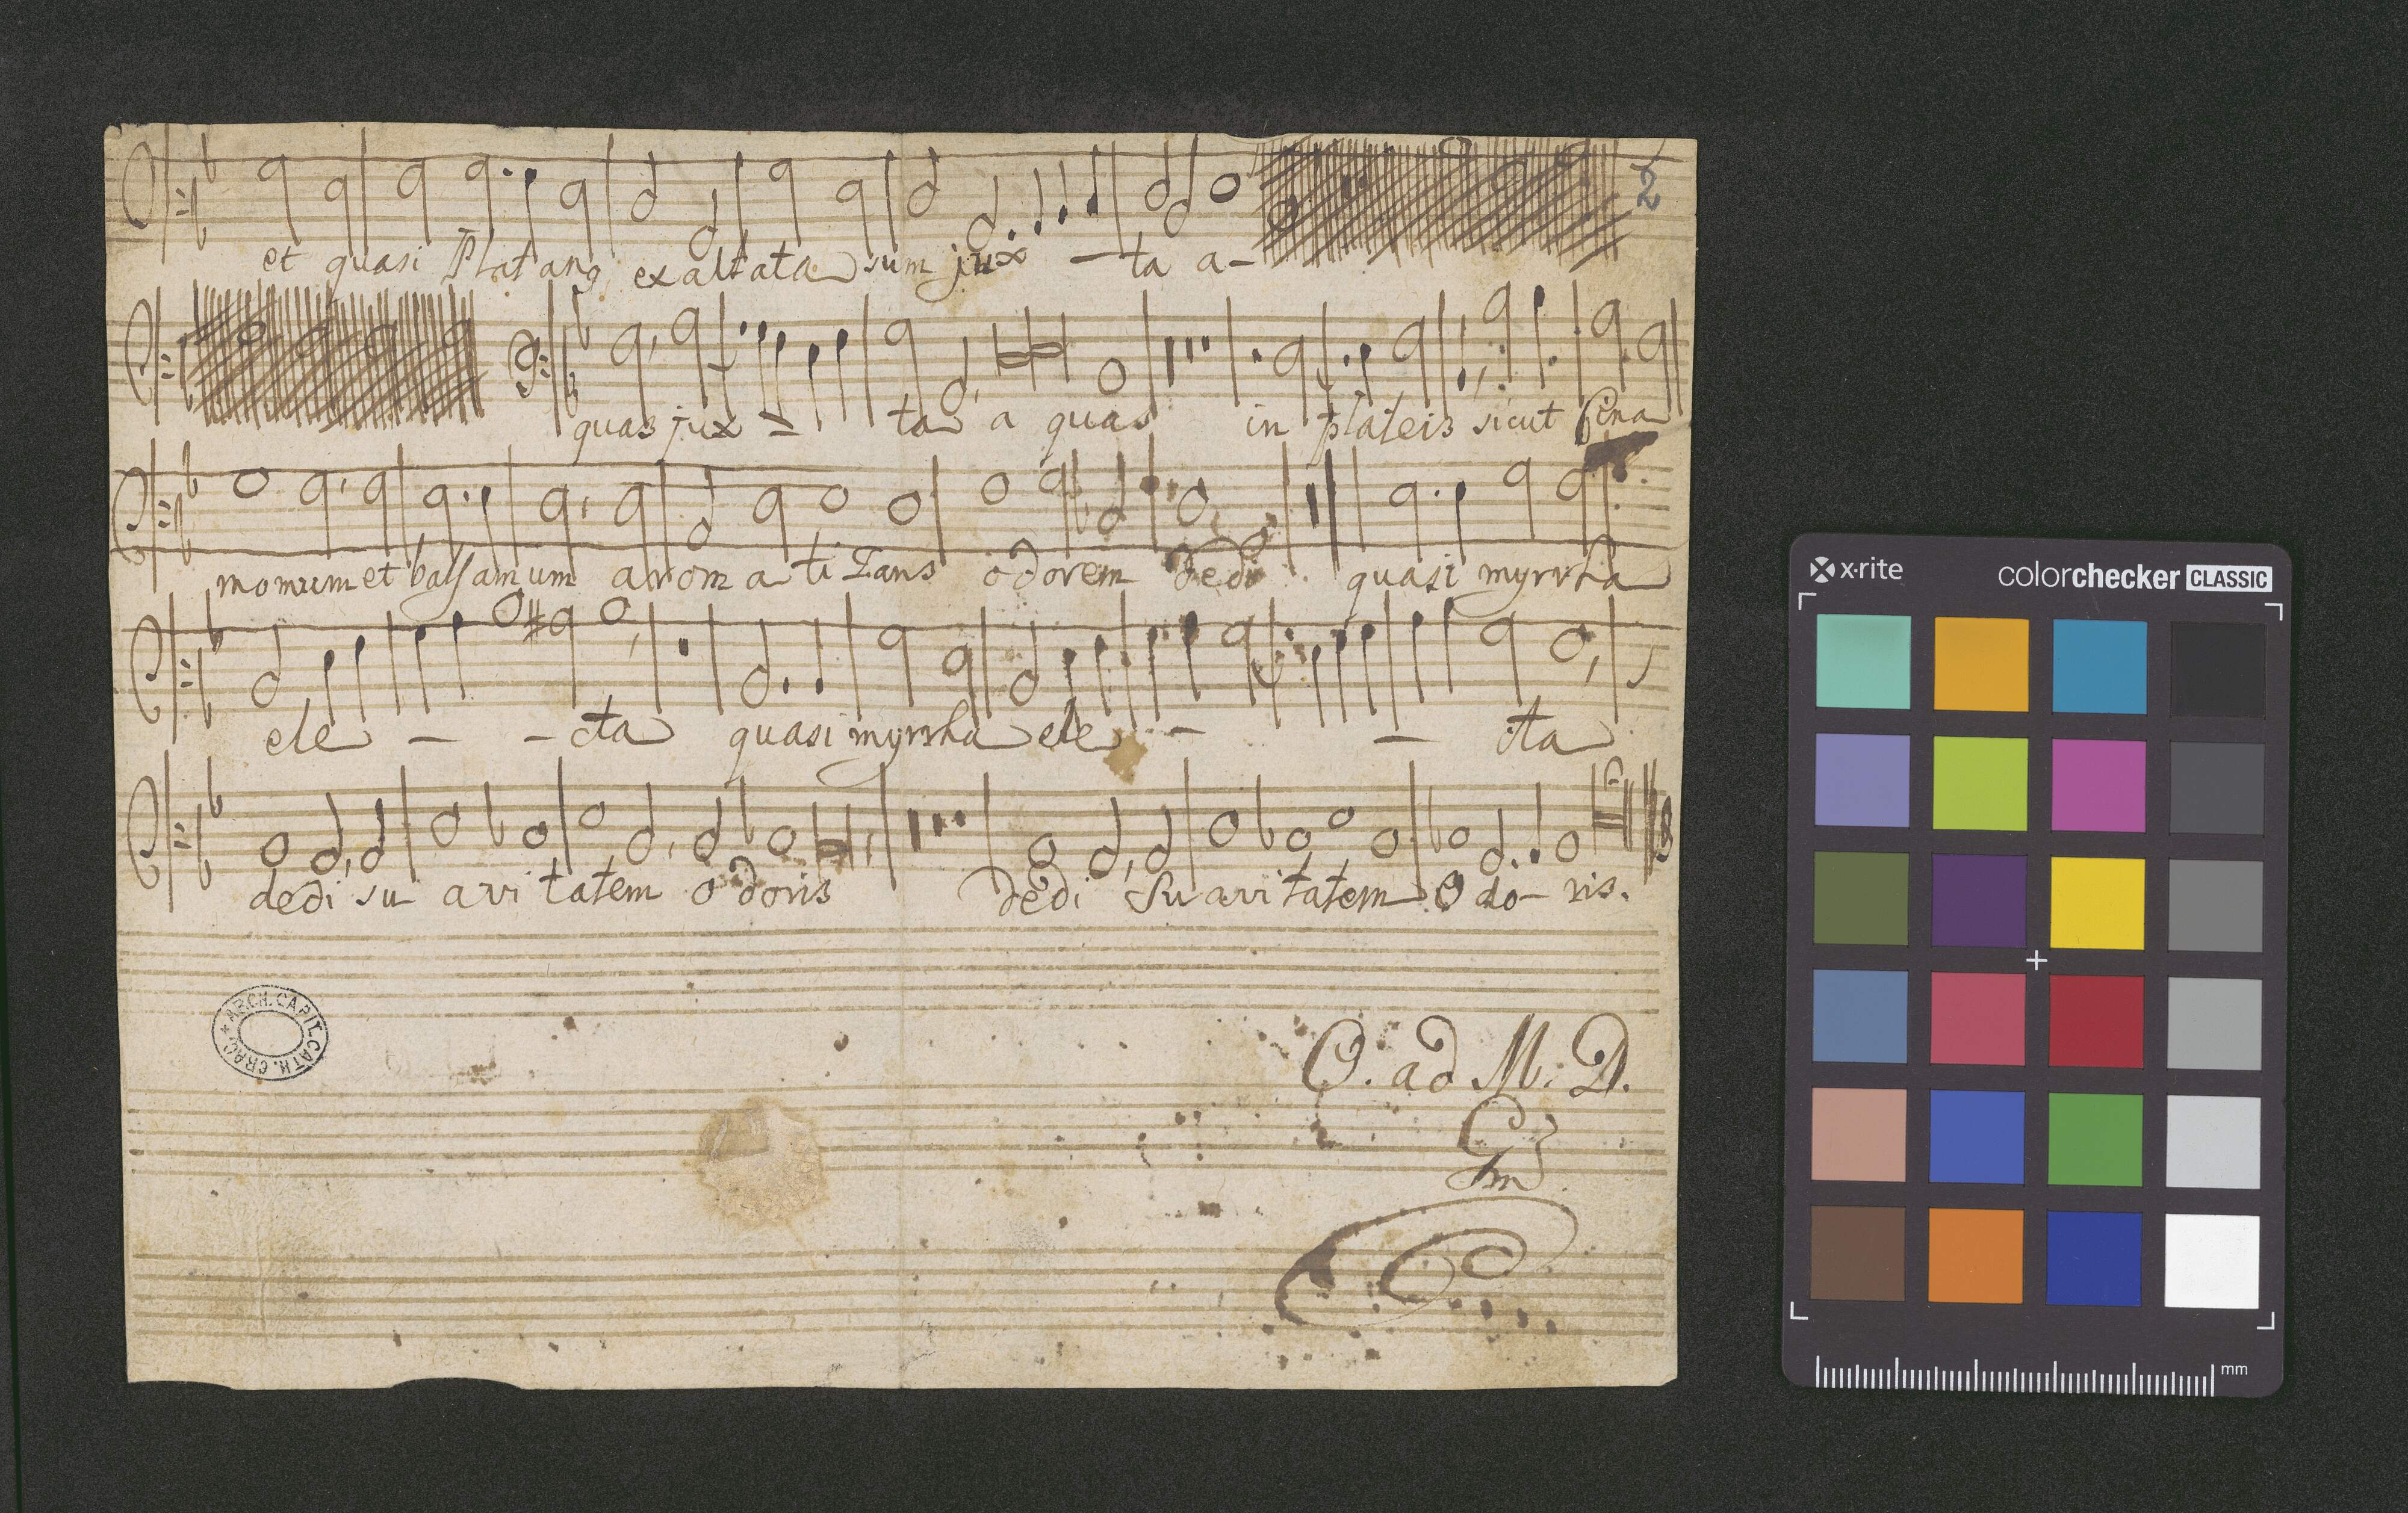 2
et quasi Platang exaltata sum jux - ta a-
quas jux - ta a quas in plateis sicut Cina
momum et balsamum aromatizans odorem dedi quasi myrrha
ele - - cta quasi myrrha ele - - cta
dedi su avi tatem odoris dedi Suavitatem O do- ris.
ARCH. CAPIT. CATH. CRAC.
O. ad M. D. G
x-rite
colorchecker CLASSIC
mm